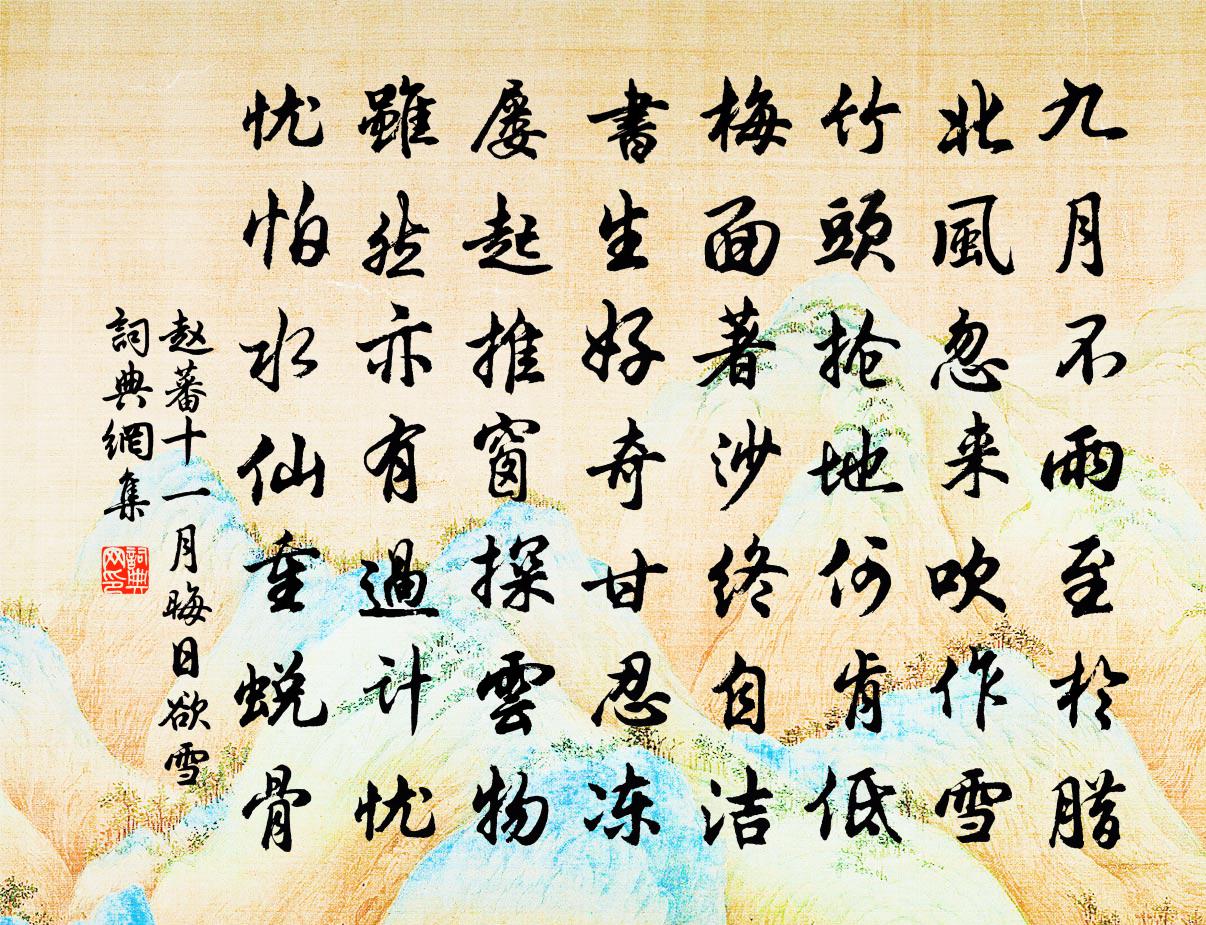 九月不雨至於腊
北風忽来吹作雪
竹頭搶地何肯低
梅面著沙終自洁
書生好奇甘忍冻
屡起推窗探雲物
雖然亦有過计忧
忧怕水仙重蜕骨
赵蕃十一月晦日欲雪
詞典網集
詞典网印